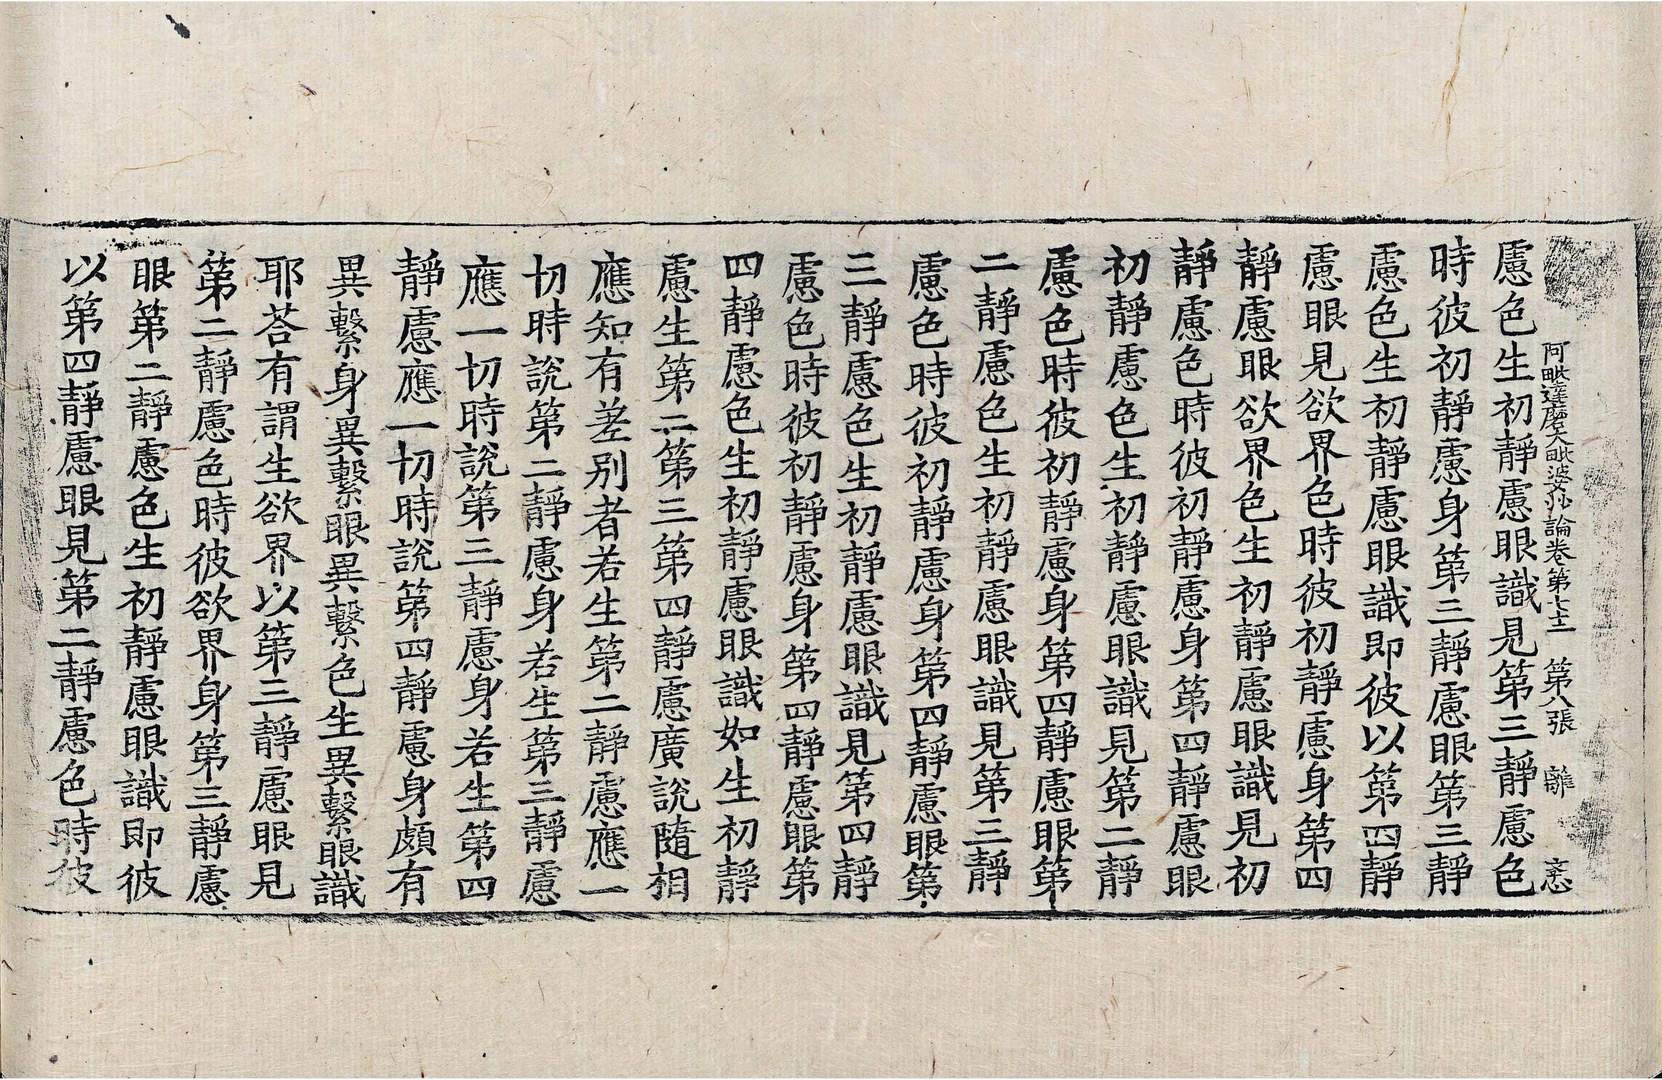 阿毗達磨大毗婆沙論卷第七十三 第八張 離
慮色生初靜慮眼識見第三靜慮色
時彼初靜慮身第三靜慮眼第三靜
慮色生初靜慮眼識即彼以第四靜
慮眼見欲界色時彼初靜慮身第四
靜慮眼欲界色生初靜慮眼識見初
靜慮色時彼初靜慮身第四靜慮眼
初靜慮色生初靜慮眼識見第二靜
慮色時彼初靜慮身第四靜慮眼第
二靜慮色生初靜慮眼識見第三靜
慮色時彼初靜慮身第四靜慮眼第
三靜慮色生初靜慮眼識見第四靜
慮色時彼初靜慮身第四靜慮眼第
四靜慮色生初靜慮眼識如生初靜
慮生第二第三第四靜慮廣說隨相
應知有差別者若生第二靜慮應一
切時說第二靜慮身若生第三靜慮
應一切時說第三靜慮身若生第四
靜慮應一切時說第四靜慮身頗有
異繫身異繫眼異繫色生異繫眼識
耶荅有謂生欲界以第三靜慮眼見
第二靜慮色時彼欲界身第三靜慮
眼第二靜慮色生初靜慮眼識即彼
以第四靜慮眼見第二靜慮色時彼